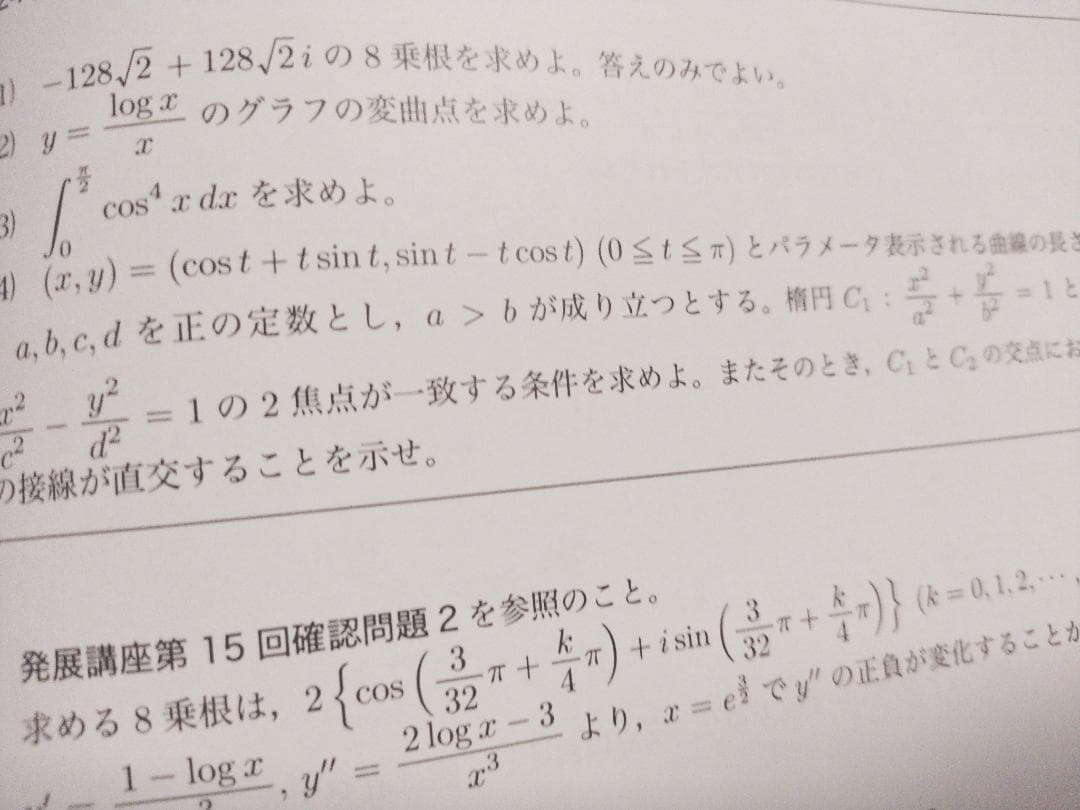 1) −128√2 + 128√2 i の 8 乗根を求めよ。答えのみでよい。
2) y = log x / x のグラフの変曲点を求めよ。
3) ∫_0^{π/2} cos⁴ x dx を求めよ。
4) (x, y) = (cos t + t sin t, sin t − t cos t) (0 ≦ t ≦ π) とパラメータ表示される曲線の長さ
a, b, c, d を正の定数とし，a > b が成り立つとする。楕円 C₁ : x²/a² + y²/b² = 1 と
x²/c² − y²/d² = 1 の 2 焦点が一致する条件を求めよ。またそのとき，C₁ と C₂ の交点にお
の接線が直交することを示せ。
発展講座第 15 回確認問題 2 を参照のこと。
求める 8 乗根は，2 { cos ( 3/32 π + k/4 π ) + i sin ( 3/32 π + k/4 π ) } (k = 0, 1, 2, ⋯,
= 1 − log x / , y″ = 2 log x − 3 / x³ より，x = e^{3/2} で y″ の正負が変化することか